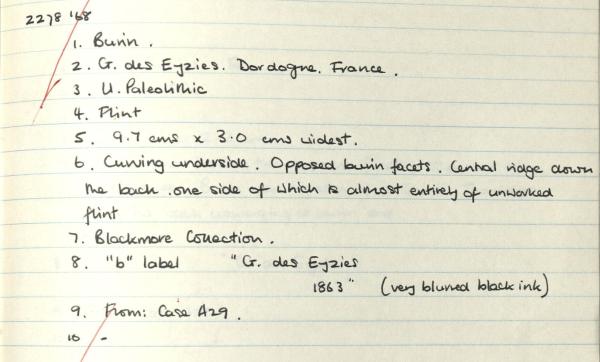 2278 '68
1. Burin.
2. G. des Eyzies. Dordogne. France.
3. U. Paleolithic
4. Flint
5. 9.7 cms x 3.0 cms widest.
6. Curving underside. Opposed burin facets. Central ridge down
the back. one side of which is almost entirely of unworked
flint
7. Blackmore Collection.
8. "b" label "G. des Eyzies
1863" (very blurred black ink)
9. From: Case A29.
10 -